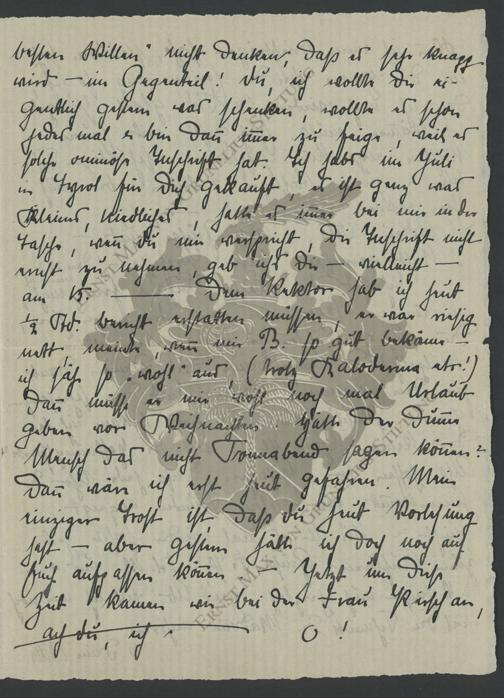 besten Willen" nicht denken, daß es sehr knapp
wird – im Gegenteil! Du, ich wollte Dir ei-
gentlich gestern was schenken, wollte es schon
jedes mal u. bin dann immer zu feige, weil es
solche ominöse Inschrift hat. Ich habs im Juli
in Tyrol für Dich gekauft, es ist ganz was
Kleines, Niedliches, hatte es immer bei mir in der
Tasche, wenn Du mir versprichst, die Inschrift nicht
ernst zu nehmen, geb ichs Dir – vielleicht –
am 15. – Dem Rektor hab ich heut
½ Std. bericht erstatten müssen, er war riesig
nett, meinte, wenn mir B. so gut bekäme –
ich sähe so "wohl" aus, (trotz Kaloderma etc!)
dann müsse er mir wohl noch mal Urlaub
geben vor Weihnachten. Hätte der dumme
Mensch das nicht Sonnabend sagen können?
Dann wäre ich erst heut gefahren. Mein
einziger Trost ist, daß Du heut Vorlesung
hast – aber gestern hätte ich doch noch auf
Euch aufpassen können – Jetzt um diese
Zeit kamen wir bei der Frau Kirsch an,
ach du, ich O!